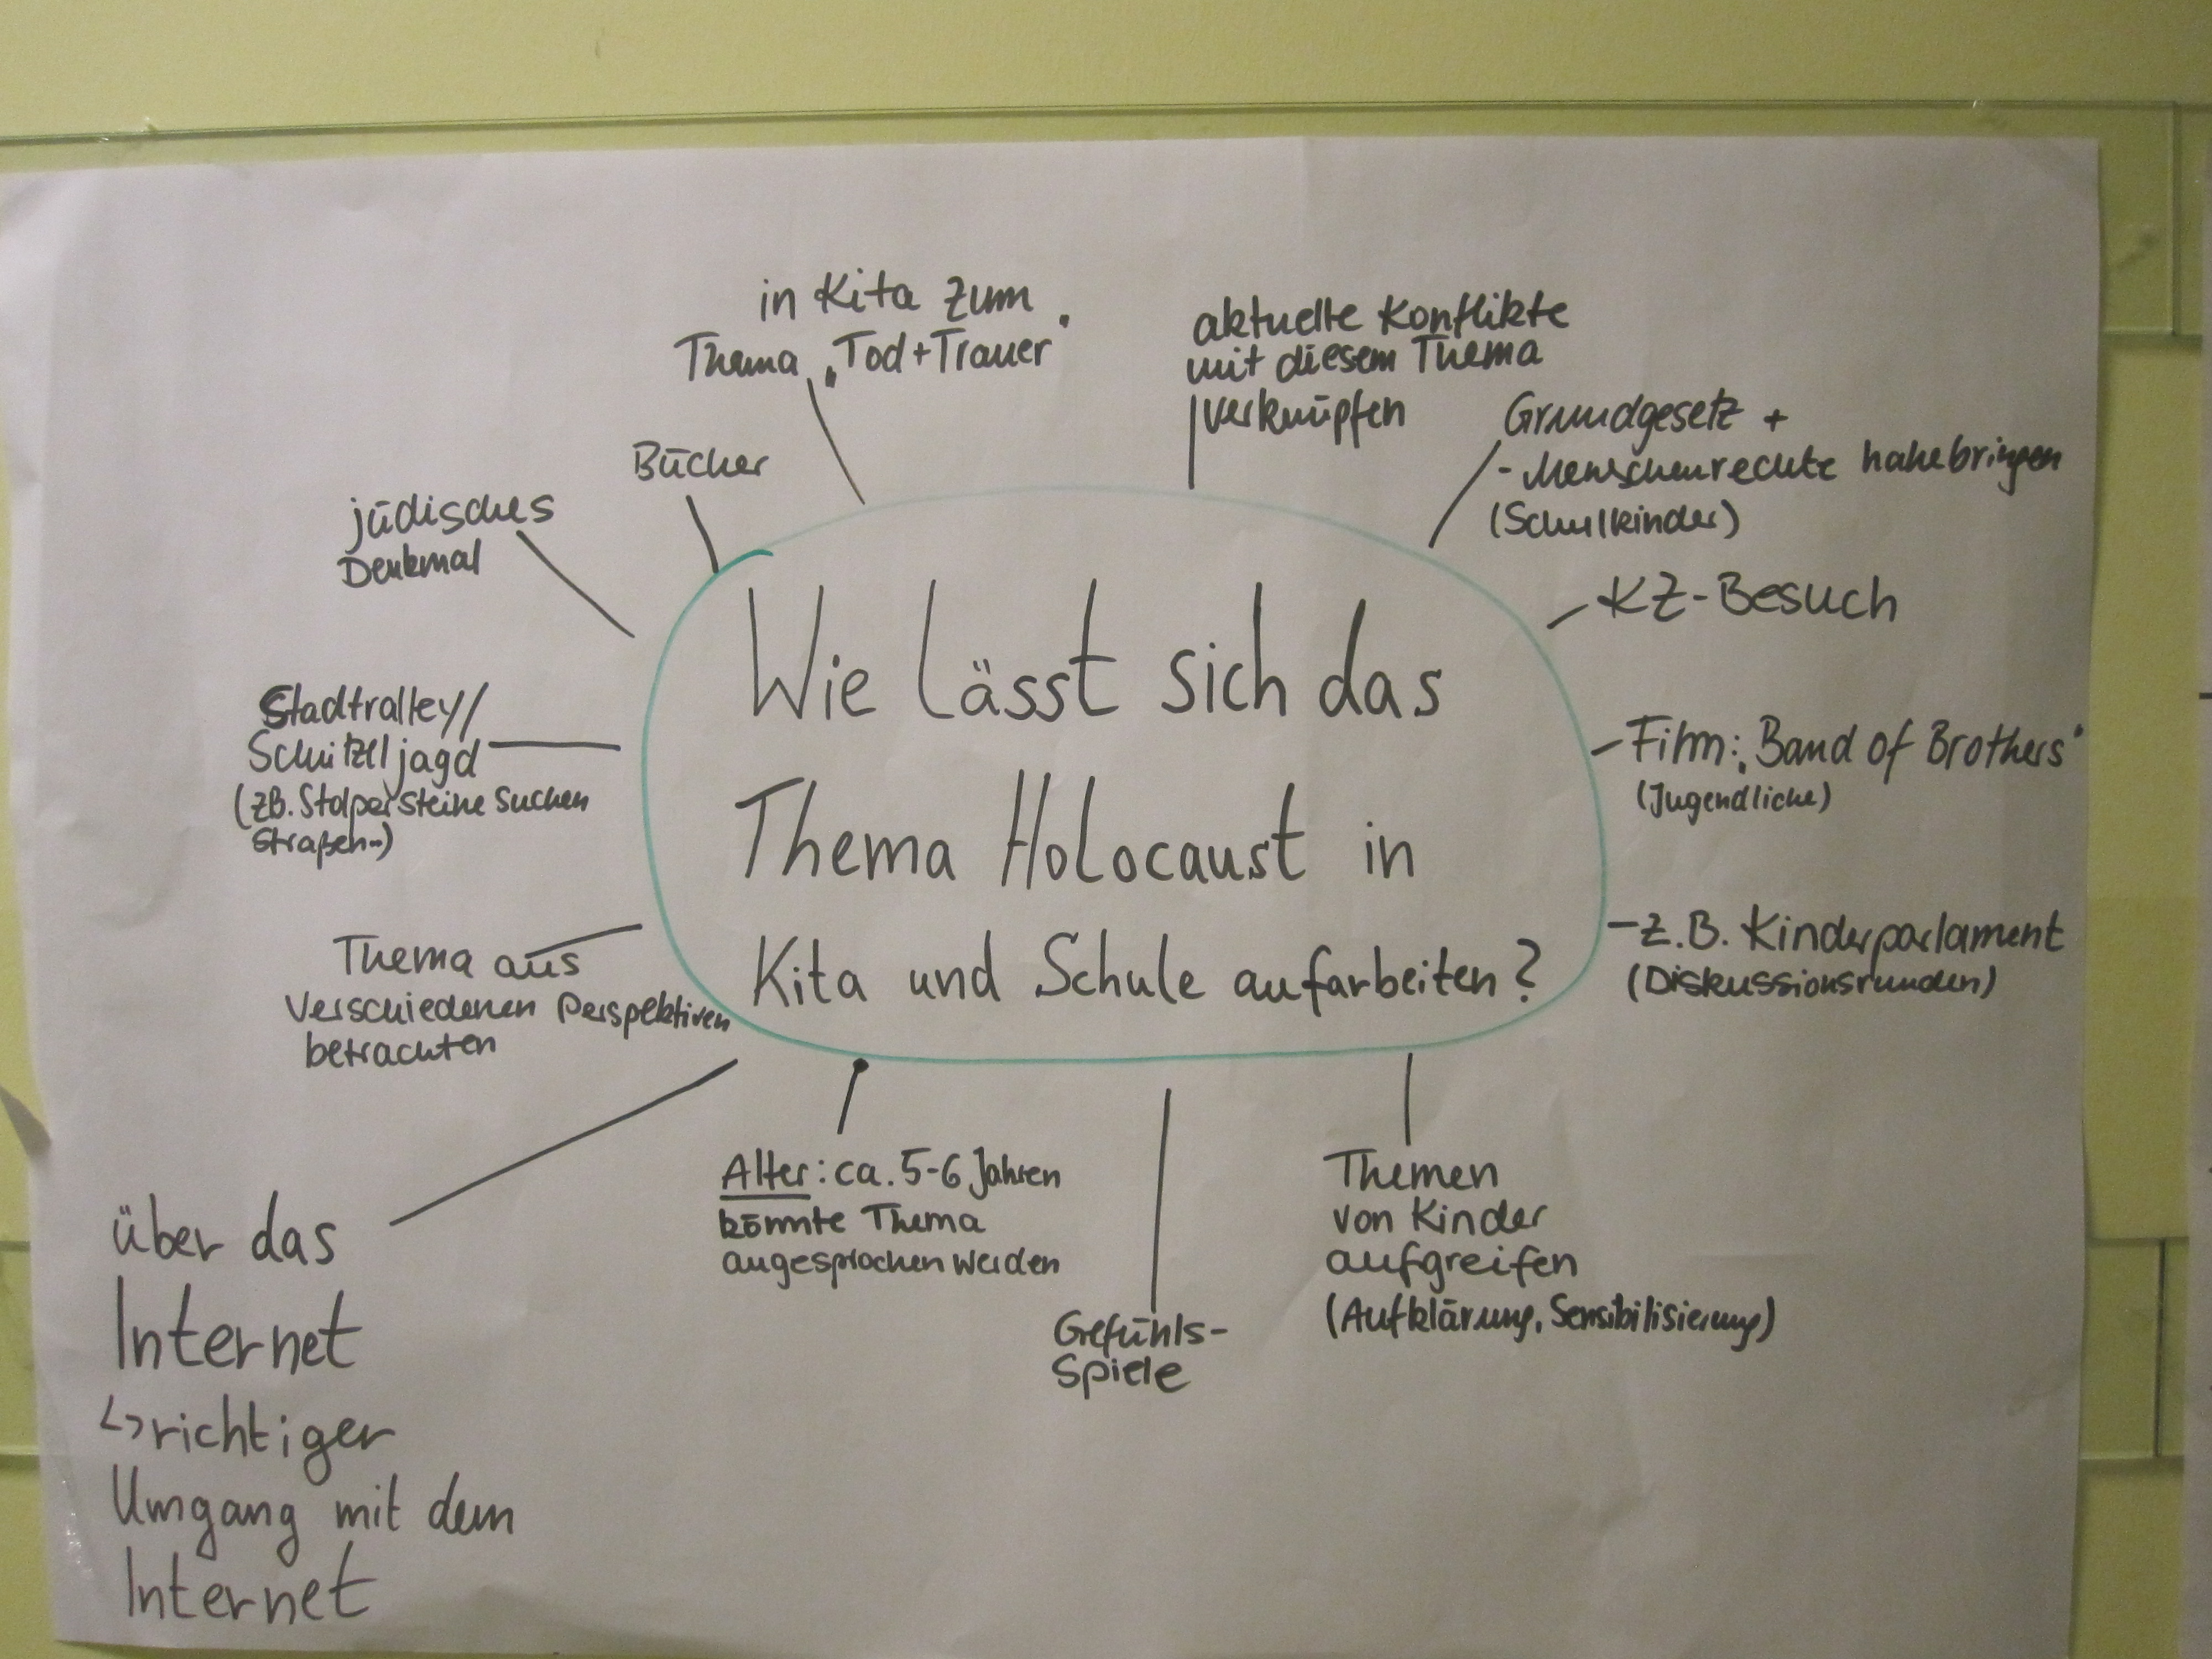 Wie lässt sich das
Thema Holocaust in
Kita und Schule aufarbeiten?
in Kita zum
Thema „Tod+Trauer"
aktuelle Konflikte
mit diesem Thema
verknüpfen
Grundgesetz +
- Menschenrechte nahebringen
(Schulkinder)
KZ-Besuch
Film: „Band of Brothers"
(Jugendliche)
z.B. Kinderparlament
(Diskussionsrunden)
Themen
von Kinder
aufgreifen
(Aufklärung, Sensibilisierung)
Gefühls-
Spiele
Alter: ca. 5-6 Jahren
könnte Thema
angesprochen werden
über das
Internet
↳ richtiger
Umgang mit dem
Internet
Thema aus
verschiedenen Perspektiven
betrachten
Stadtralley/
Schnitzeljagd
(zB. Stolpersteine suchen
Straßen..)
jüdisches
Denkmal
Bücher